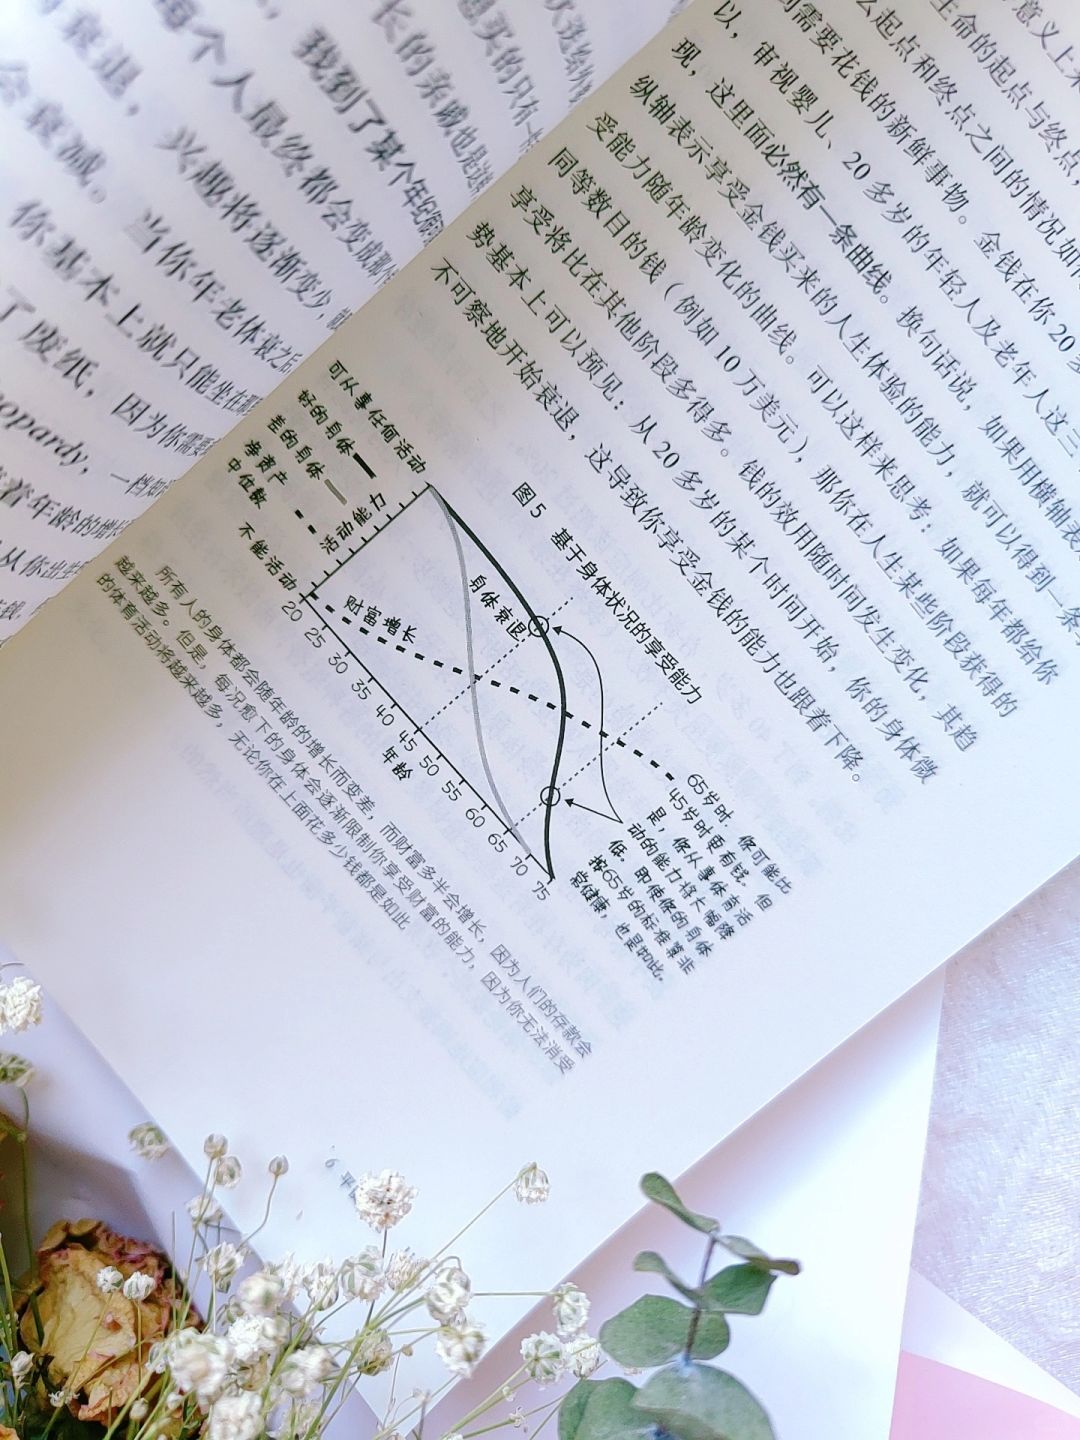 我到了某个年纪
每个人最终都会变成那
衰退，兴趣将逐渐变少，
会衰减。当你年老体衰之后
你基本上就只能坐在
了废纸，因为你需要
opardy，一档知
着年龄的增长
从你出生
意义上来
生命的起点与终点，
么起点和终点之间的情况如
到需要花钱的新鲜事物。金钱在你20多
以，审视婴儿、20多岁的年轻人及老年人这三
现，这里面必然有一条曲线。换句话说，如果用横轴表
纵轴表示享受金钱买来的人生体验的能力，就可以得到一条
受能力随年龄变化的曲线。可以这样来思考：如果每年都给你
同等数目的钱（例如10万美元），那你在人生某些阶段获得的
享受将比在其他阶段多得多。钱的效用随时间发生变化，其趋
势基本上可以预见：从20多岁的某个时间开始，你的身体微
不可察地开始衰退，这导致你享受金钱的能力也跟着下降。
图5 基于身体状况的享受能力
可从事任何活动
好的身体
差的身体
净资产
中位数
活动能力
不能活动
身体衰退
财富增长
20 25 30 35 40 45 50 55 60 65 70 75
年龄
65岁时，你可能比
45岁时更有钱。但
是，你从事体育活
动的能力将大幅降
低。即使你的身体
按65岁的标准算非
常健康，也是如此。
所有人的身体都会随年龄的增长而变差，而财富多半会增长，因为人们的存款会
越来越多。但是，每况愈下的身体会逐渐限制你享受财富的能力，因为你无法消受
的体育活动将越来越多，无论你在上面花多少钱都是如此